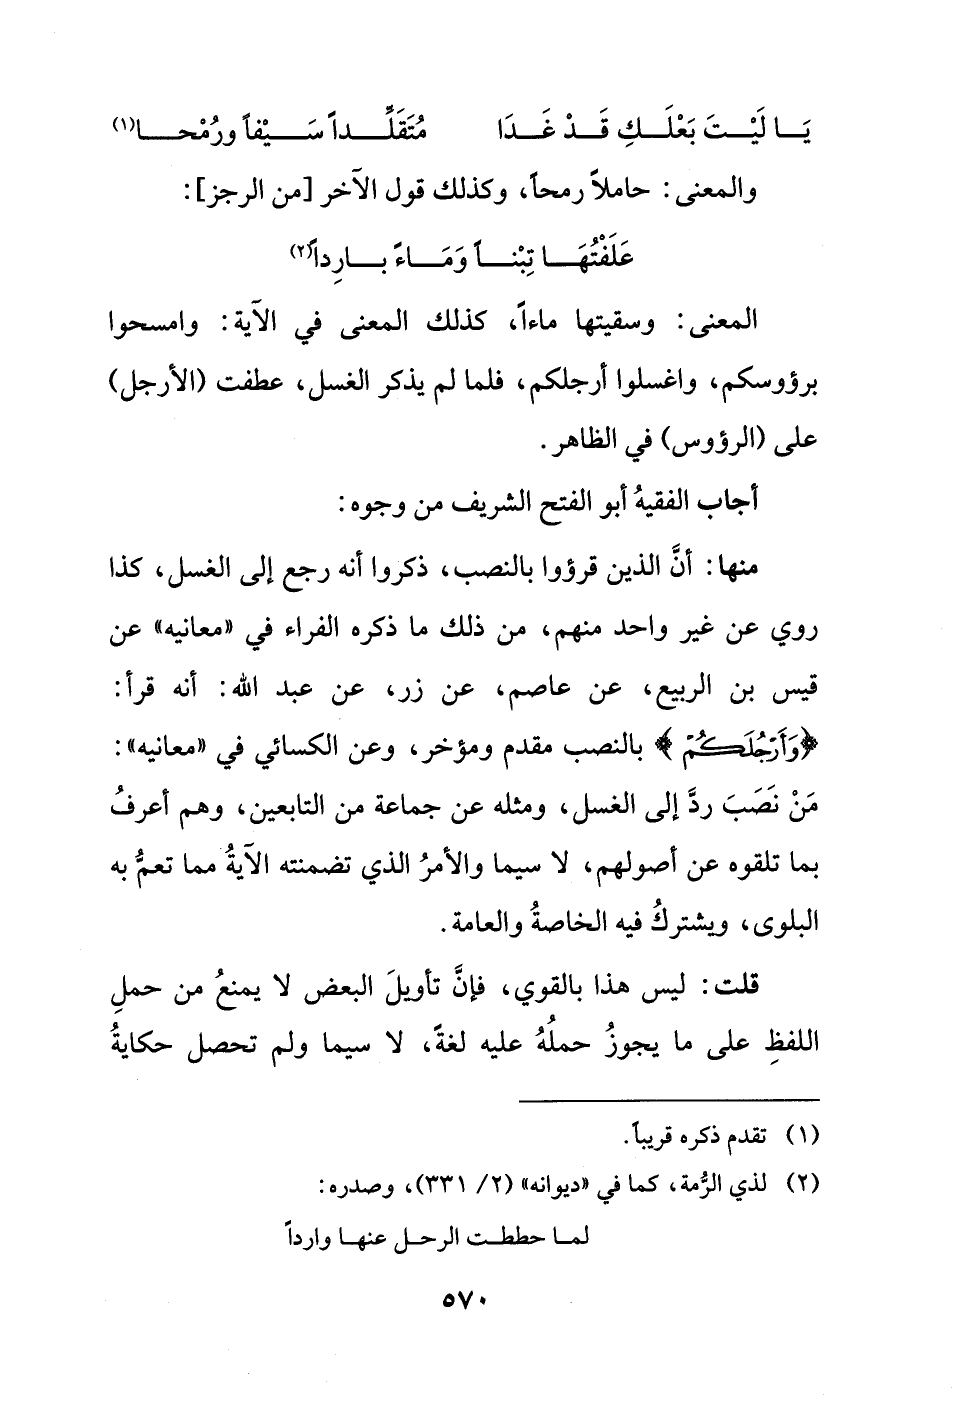 يَـا لَيْـتَ بَعْلَـكِ قَـدْ غَـدَا مُتَقَلِّـداً سَـيْفاً ورُمْحـا(١)
والمعنى: حاملاً رمحاً، وكذلك قول الآخر [من الرجز]:
عَلَفْتُهَـا تِبْنـاً وَمَـاءً بـارِداً(٢)
المعنى: وسقيتها ماءاً، كذلك المعنى في الآية: وامسحوا
برؤوسكم، واغسلوا أرجلكم، فلما لم يذكر الغسل، عطفت (الأرجل)
على (الرؤوس) في الظاهر.
أجاب الفقيهُ أبو الفتح الشريف من وجوه:
منها: أنَّ الذين قرؤوا بالنصب، ذكروا أنه رجع إلى الغسل، كذا
روي عن غير واحد منهم، من ذلك ما ذكره الفراء في «معانيه» عن
قيس بن الربيع، عن عاصم، عن زر، عن عبد الله: أنه قرأ:
﴿وَأَرْجُلَكُمْ﴾ بالنصب مقدم ومؤخر، وعن الكسائي في «معانيه»:
مَنْ نَصَبَ ردَّ إلى الغسل، ومثله عن جماعة من التابعين، وهم أعرفُ
بما تلقوه عن أصولهم، لا سيما والأمرُ الذي تضمنته الآيةُ مما تعمُّ به
البلوى، ويشتركُ فيه الخاصةُ والعامة.
قلت: ليس هذا بالقوي، فإنَّ تأويلَ البعض لا يمنعُ من حملِ
اللفظِ على ما يجوزُ حملُهُ عليه لغةً، لا سيما ولم تحصل حكايةُ
(١) تقدم ذكره قريباً.
(٢) لذي الرُّمة، كما في «ديوانه» (٢/ ٣٣١)، وصدره:
لمـا حططـت الرحـل عنهـا وارداً
٥٧٠